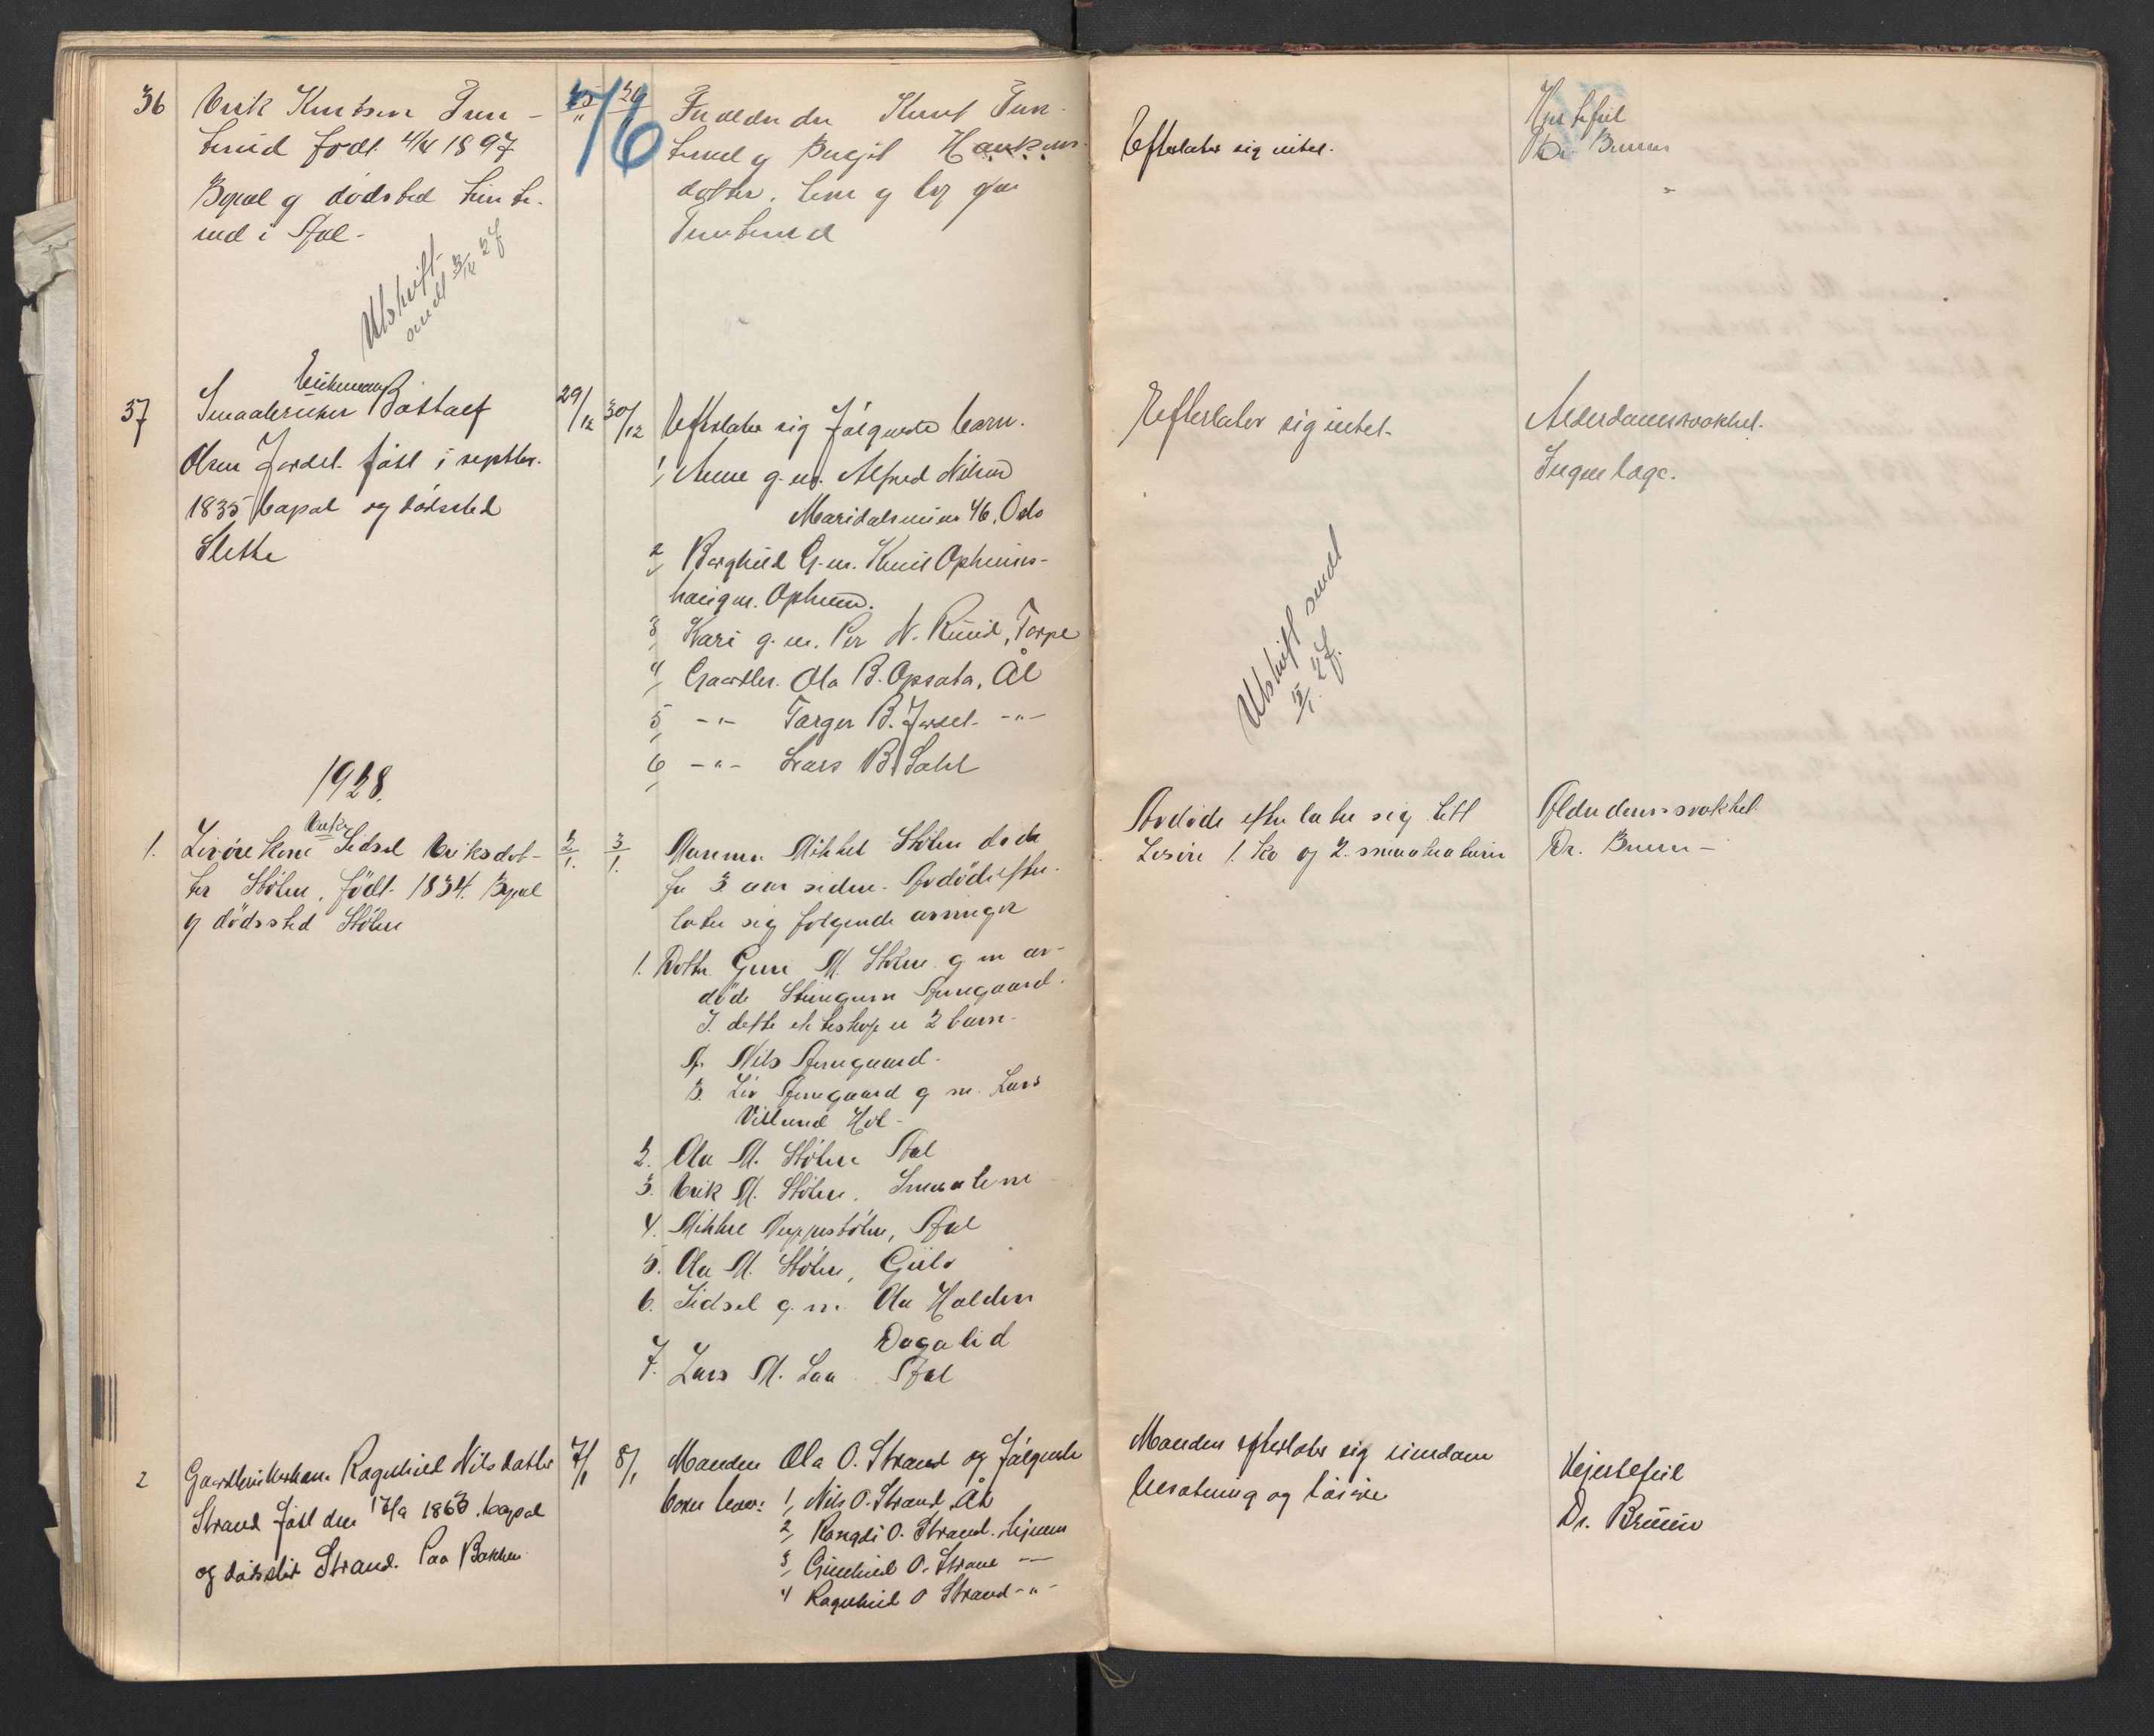 36
Erik Knutsen Tun-
terud født 4/4 1897
Bopæl og dødsted Tunte-
rud i Aal-
Utskrift
sendt 3/1 27
29
76
Foreldrene Knut Tun-
terud og Birgit Haakens-
dotter. Leve og bor paa
Tunterud
Efterlater sig intet.
Hjertefeil
Dr. Bruun
37
Enkemand
Smaabruker Botolf
Olsen Jordet født i septbr.
1835 bopæl og dødssted
Slette
29/12 30/12
Efterlater sig følgende barn.
1, Anne g.m. Alfred Nilsen
Maridalsveien 46, Oslo
2, Borghild G.m. Knut Opheims-
haugen. Opheim.
3, Kari g.m. Per N. Ruud, Torpe
4, Gaardbr. Ola B. Opsata, Ål
5, -"- Torger B. Jordet -"-
6, -"- Lars B. Dahl
Efterlater sig intet.
Utskrift sendt
5/1 27.
Alderdomssvakhet.
Ingen læge.
1928.
1.
Enke
Livøre Kone Sidsel Eriksdot-
ter Stølen, født 1834. Bopæl
og dødssted Stølen
2/1. 3/1.
Mannen Mikkel Stølen døde
for 3 aar siden. Avdøde efter-
later sig følgende arvinger
1. Dotter Guri M. Stølen g m av-
døde Steingrim Arnegaard.
I dette ekteskap er 2 barn.
A. Nils Arnegaard.
B. Liv Arnegaard g m. Lars
Villund Hol-
2. Ola M. Stølen Aal
3. Erik M. Stølen. Smaalene
4. Mikkel Nuppestølen, Aal
5. Ola M. Stølen, Geilo
6. Sidsel g.m. Ola Halden
Dagalid
7. Lars M. Laa Aal
Avdøde efterlater sig litt
Løsøre 1. ko og 2. smaakreaturer
Alderdomssvakhet
Dr. Bruun -
2
Gaardbrukerkone Ragnhild Nilsdatter
Strand født den 17/9 1863. bopæl
og dødssted Strand. Paa Bakken
7/1 8/1
Manden Ola O. Strand og følgende
barn lever: 1, Nils O. Strand, Ål
2, Rangdi O. Strand. hjemme
3, Gunhild O. Strand -"-
4 Ragnhild O Strand -"-
Manden efterlater sig eiendom
besætning og løsøre
Hjertefeil
Dr. Bruun